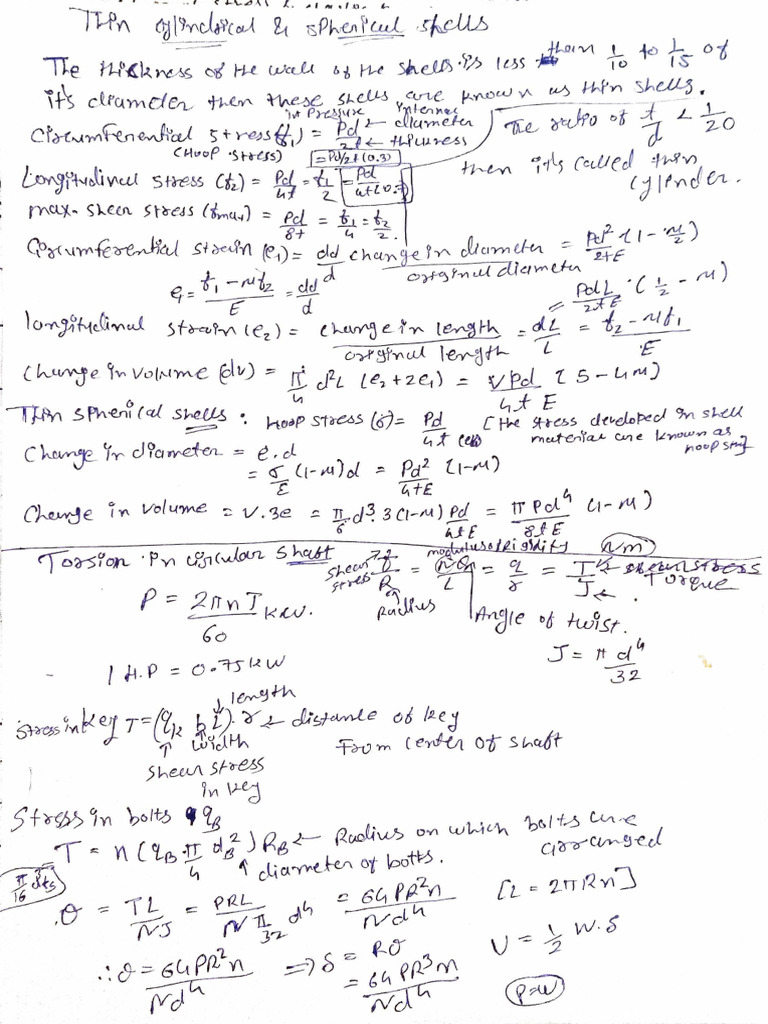 Thin cylinderical & spherical shells
The thickness of the wall of the shells is less than 1/10 to 1/15 of
it's diameter then these shells are known as thin shells.
int pressure internal
Circumferential stress (f1) = Pd/2t ← diameter ← thickness
The ratio of t/d < 1/20
(Hoop stress) = Pd/2t(0.3)
then it's called thin
cylinder.
Longitudinal stress (f2) = Pd/4t = f1/2 = Pd/4t
max. shear stress (fmax) = Pd/8t = f1/4 = f2/2.
Circumferential strain (e1) = dd/d change in diameter/original diameter = Pd²/2tE (1 - μ/2)
e1 = f1 - μf2/E = dd/d
= PdL/2tE (1/2 - μ)
longitudinal strain (e2) = change in length/original length = dL/L = f2 - μf1/E
Change in volume (dv) = π/4 d²L (e2 + 2e1) = VPd/4tE [5 - 4μ)
Thin spherical shells : Hoop stress (σ) = Pd/4t [the stress developed in shell
material are known as
hoop
Change in diameter = e.d
= σ/E (1-μ)d = Pd²/4tE (1-μ)
Change in volume = V.3e = π/6 d³.3(1-μ) Pd/4tE = πPd⁴/8tE (1-μ)
Torsion in circular shaft
modulus of rigidity Nm
shear stress → f/R = Nθ/L = q/r = T/J ← Torque
Radius
P = 2πnT/60 KW.
Angle of twist.
J = πd⁴/32
1 H.P = 0.75KW
length
Stress in key T = (qk b l). r ← distance of key
width
From center of shaft
shear stress
in key
Stress in bolts qB
T = n(qB π/4 dB²) RB ← Radius on which bolts are
arranged
diameter of bolts.
θ = TL/NJ = PRL/N π/32 d⁴ = 64PR²n/Nd⁴ [L = 2πRn]
∴ θ = 64PR²n/Nd⁴ ⇒ δ = Rθ
U = 1/2 W.δ
= 64PR³n/Nd⁴
P=W